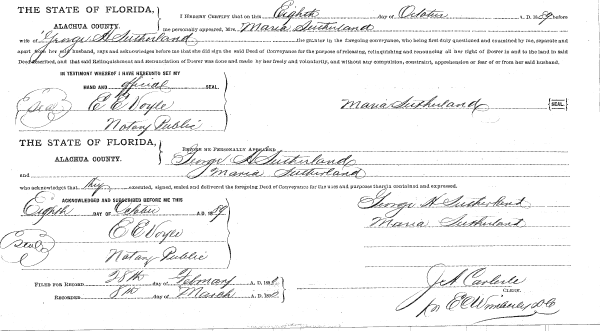 THE STATE OF FLORIDA,
ALACHUA COUNTY.
I HEREBY CERTIFY that on this Eighth day of October A.D. 1889 before
me personally appeared, Mrs. Maria Sutherland
wife of George H Sutherland the grantor in the foregoing conveyance, who being first duly questioned and examined by me, separate and
apart from her said husband, says and acknowledges before me that she did sign the said Deed of Conveyance for the purpose of releasing, relinquishing and renouncing all her right of Dower in and to the land in said
Deed described, and that said Relinquishment and Renunciation of Dower was done and made by her freely and voluntarily, and without any compulsion, constraint, apprehension or fear of or from her said husband.
IN TESTIMONY WHEREOF I HAVE HEREUNTO SET MY
HAND AND official SEAL.
Seal E E Voyle
Notary Public
Maria Sutherland SEAL.
THE STATE OF FLORIDA,
ALACHUA COUNTY.
BEFORE ME PERSONALLY APPEARED
George H Sutherland
and Maria Sutherland
who acknowledged that they executed, signed, sealed and delivered the foregoing Deed of Conveyance for the uses and purposes therein contained and expressed.
ACKNOWLEDGED AND SUBSCRIBED BEFORE ME THIS
Eighth DAY OF October A.D. 1889
E E Voyle
Seal
Notary Public
George H Sutherland
Maria Sutherland
FILED FOR RECORD 28th day of February A. D. 1890
RECORDED 8th day of March A. D. 1890
J A Carlisle
CLERK.
for E C